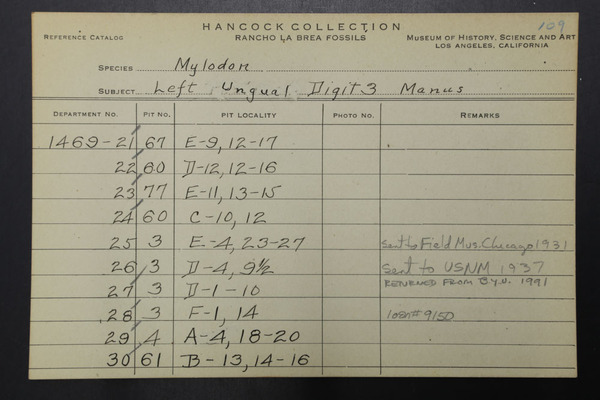 109
HANCOCK COLLECTION
REFERENCE CATALOG RANCHO LA BREA FOSSILS MUSEUM OF HISTORY, SCIENCE AND ART
LOS ANGELES, CALIFORNIA
SPECIES Mylodon
SUBJECT Left Ungual Digit 3 Manus
DEPARTMENT NO. PIT NO. PIT LOCALITY PHOTO NO. REMARKS
1469-21 67 E-9, 12-17
22 60 D-12, 12-16
23 77 E-11, 13-15
24 60 C-10, 12
25 3 E-4, 23-27 sent to Field Mus. Chicago 1931
26 3 D-4, 9½ sent to USNM 1937
27 3 D-1-10 RETURNED FROM B.Y.U. 1991
28 3 F-1, 14 loan# 9150
29 4 A-4, 18-20
30 61 B-13, 14-16